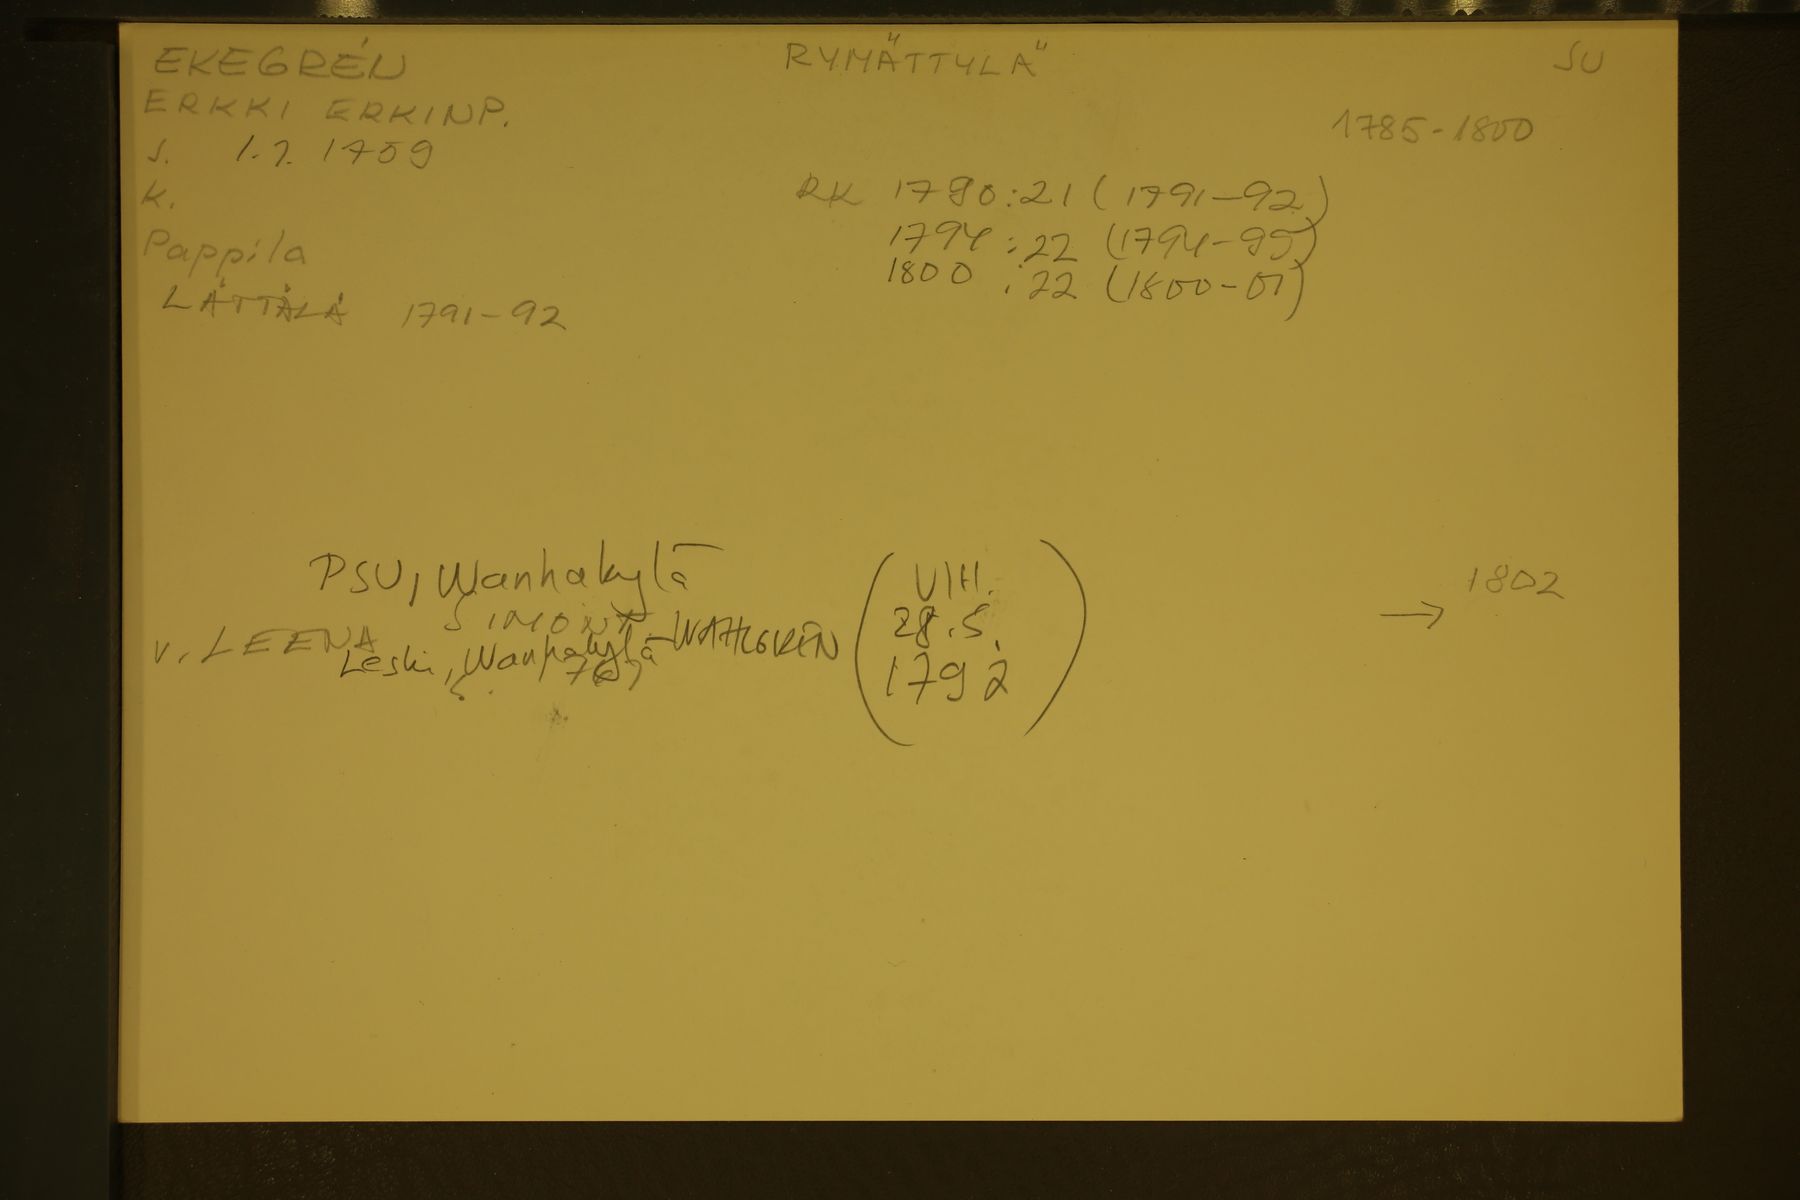 EKEGRÉN RYMÄTTYLÄ SU
ERKKI ERKINP. 1785-1800
S. 1.7. 1759
K. RK 1790:21 (1791-92)
1794:22 (1794-99)
Pappila 1800:22 (1800-01)
LÄTTÄLÄ 1791-92
PSU, Wanhakylä (VIH. 28.5. 1792) → 1802
V. LEENA SIMONT. WAHLGRÉN
Leski, Wanhakylä
S. 1767